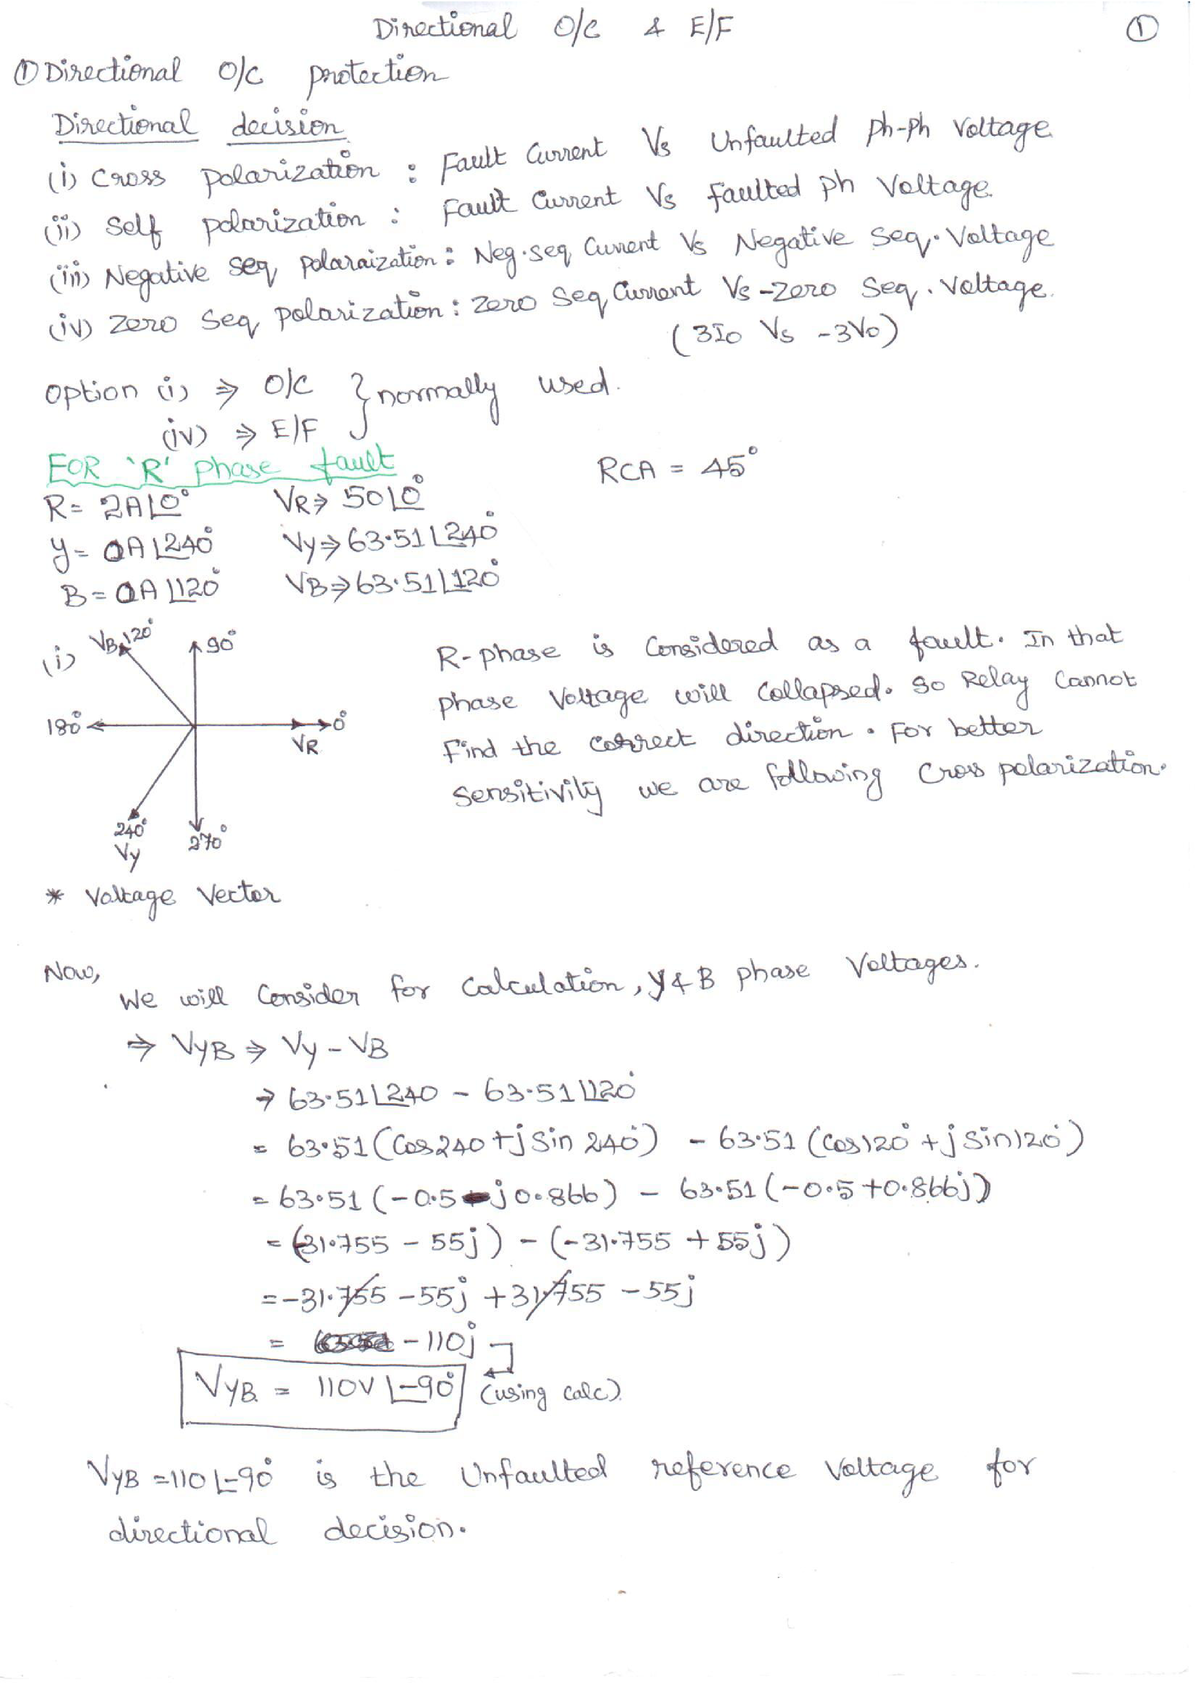 Directional O/C & E/F ①
① Directional O/C protection
Directional decision
(i) Cross polarization : Fault Current Vs Unfaulted Ph-Ph Voltage
(ii) Self polarization : Fault Current Vs faulted ph Voltage.
(iii) Negative seq polaraization : Neg.seq Current Vs Negative Seq. Voltage
(iv) Zero Seq polarization : Zero Seq Current Vs -zero Seq. Voltage.
(3I0 Vs -3V0)
Option (i) ⇒ O/C } normally used.
(iv) ⇒ E/F
FOR 'R' Phase fault RCA = 45°
R = 2A∠0° VR ⇒ 50∠0°
Y = 0A∠240° Vy ⇒ 63.51∠240°
B = 0A∠120° VB ⇒ 63.51∠120°
(i) VB 120° 90°
180° 0°
VR
240° 270°
Vy
R-phase is Considered as a fault. In that
phase Voltage will Collapsed. So Relay Cannot
Find the correct direction. For better
Sensitivity we are following Cross polarization.
* Voltage Vector
Now,
We will Consider for Calculation, Y & B phase Voltages.
⇒ VYB ⇒ Vy - VB
→ 63.51∠240 - 63.51∠120°
= 63.51 (Cos 240 + j Sin 240°) - 63.51 (Cos 120° + j Sin 120°)
= 63.51 (-0.5 - j 0.866) - 63.51 (-0.5 + 0.866j)
= (-31.755 - 55j) - (-31.755 + 55j)
= -31.755 - 55j + 31.755 - 55j
= -110j
VYB = 110V ∠-90° (using calc).
VYB = 110∠-90° is the Unfaulted reference Voltage for
directional decision.